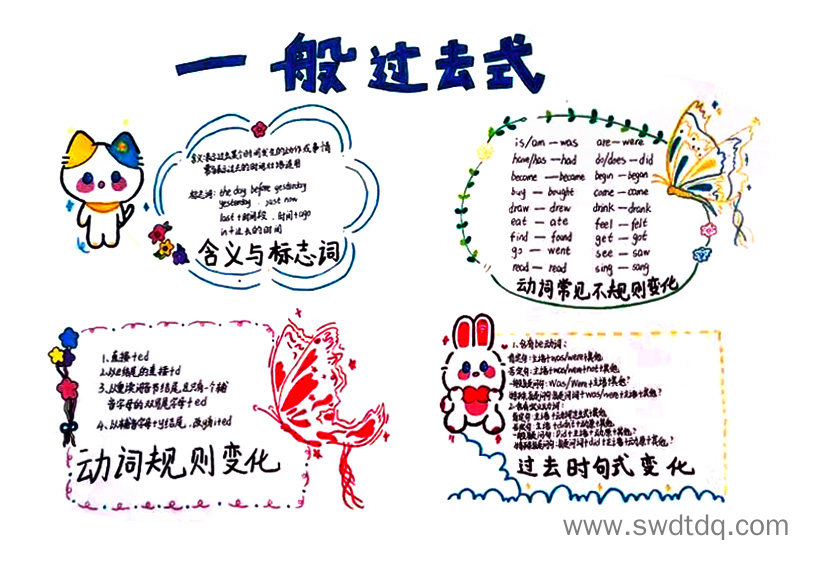 一般过去式
含义:表示过去某个时间发生的动作或事情
常与表示过去的时间状语连用
标志词: the day before yesterday
yesterday, just now
last+时间段, 时间+ago
in+过去的时间
含义与标志词
is/am—was are—were
have/has—had do/does—did
become—became begin—began
buy—bought come—came
draw—drew drink—drank
eat—ate feel—felt
find—found get—got
go—went see—saw
read—read sing—sang
动词常见不规则变化
1、直接+ed
2、以e结尾的直接+d
3、以重读闭音节结尾,且只有一个辅
音字母的双写尾字母+ed
4、以辅音字母+y结尾,改y为i+ed
动词规则变化
1、含有be动词:
肯定句:主语+was/were+其他
否定句:主语+was/were+not+其他
一般疑问句:Was/Were+主语+其他?
特殊疑问句:疑问词+was/were+主语+其他?
2、含有实义动词:
肯定句:主语+动词过去式+其他
否定句:主语+didn't+动原+其他
一般疑问句:Did+主语+动原+其他?
特殊疑问句:疑问词+did+主语+动原+其他?
过去时句式变化
www.swdtdq.com